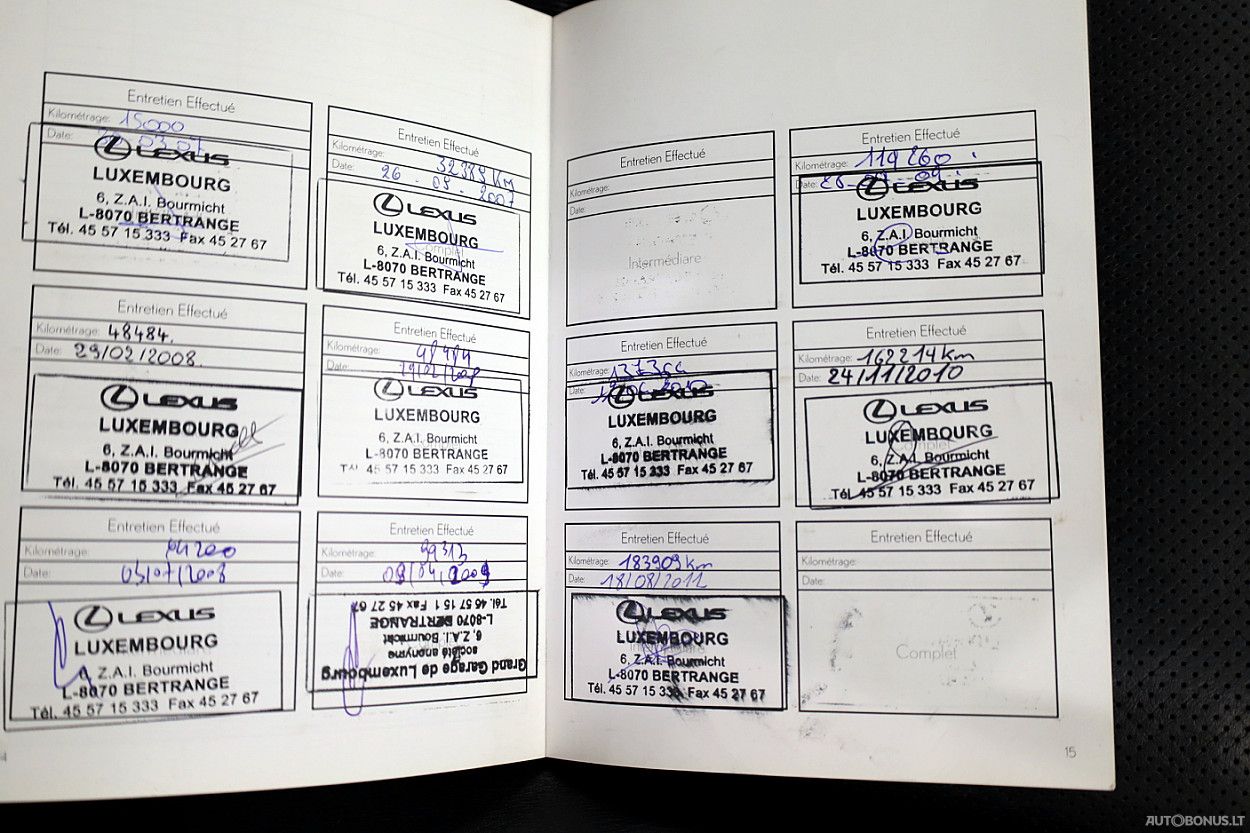 Entretien Effectué
Kilométrage: 15000
Date: 03.07
LEXUS
LUXEMBOURG
6, Z.A.I. Bourmicht
L-8070 BERTRANGE
Tél. 45 57 15 333 Fax 45 27 67
Entretien Effectué
Kilométrage: 32384 Km
Date: 26 - 09 - 2007
LEXUS
LUXEMBOURG
6, Z.A.I. Bourmicht
L-8070 BERTRANGE
Tél. 45 57 15 333 Fax 45 27 67
Entretien Effectué
Kilométrage: 48484.
Date: 29/02/2008.
LEXUS
LUXEMBOURG
6, Z.A.I. Bourmicht
L-8070 BERTRANGE
Tél. 45 57 15 333 Fax 45 27 67
Entretien Effectué
Kilométrage:
Date:
LEXUS
LUXEMBOURG
6, Z.A.I. Bourmicht
L-8070 BERTRANGE
45 57 15 333 Fax 45 27 67
Entretien Effectué
Kilométrage:
Date: 03/07/2008
LEXUS
LUXEMBOURG
Z.A.I. Bourmicht
L-8070 BERTRANGE
Tél. 45 57 15 333 Fax 45 27 67
Entretien Effectué
Kilométrage: 99313
Date: 09/04/2009
Grand Garage de Luxembourg
société anonyme
6, Z.A.I. Bourmicht
L-8070 BERTRANGE
Tél. 45 57 15 1 Fax 45 27 67
Entretien Effectué
Kilométrage:
Date:
Intermédiaire
Entretien Effectué
Kilométrage: 119260
Date:
LEXUS
LUXEMBOURG
6, Z.A.I. Bourmicht
L-8070 BERTRANGE
Tél. 45 57 15 333 Fax 45 27 67
Entretien Effectué
Kilométrage:
Date:
LEXUS
LUXEMBOURG
6, Z.A.I. Bourmicht
L-8070 BERTRANGE
Tél. 45 57 15 333 Fax 45 27 67
Entretien Effectué
Kilométrage: 162214km
Date: 24/11/2010
LEXUS
LUXEMBOURG
6, Z.A.I. Bourmicht
L-8070 BERTRANGE
Tél. 45 57 15 333 Fax 45 27 67
Entretien Effectué
Kilométrage: 183909 km
Date: 18/08/2011
LEXUS
LUXEMBOURG
6, Z.A.I. Bourmicht
L-8070 BERTRANGE
Tél. 45 57 15 333 Fax 45 27 67
Entretien Effectué
Kilométrage:
Date:
Complet
15
AUTOBONUS.LT